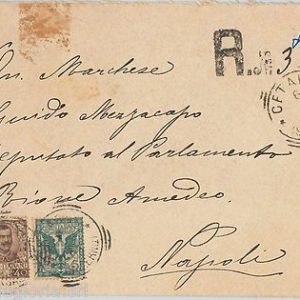 R. No 3
CETA
On. Marchese
Guido Mezzacapo
Deputato al Parlamento
Rione Amedeo
Napoli